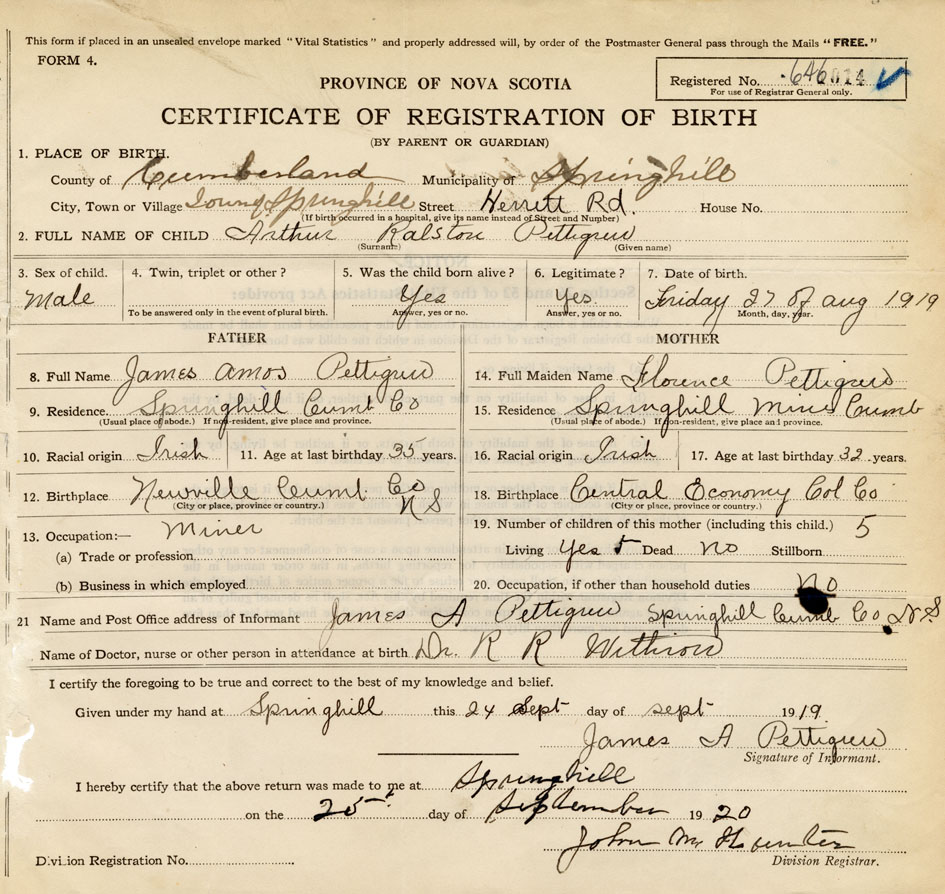 This form if placed in an unsealed envelope marked "Vital Statistics" and properly addressed will, by order of the Postmaster General pass through the Mails "FREE."
FORM 4.
Registered No. 646014
For use of Registrar General only.
PROVINCE OF NOVA SCOTIA
CERTIFICATE OF REGISTRATION OF BIRTH
(BY PARENT OR GUARDIAN)
1. PLACE OF BIRTH.
County of Cumberland Municipality of Springhill
City, Town or Village Springhill Street Herrett Rd. House No.
(If birth occurred in a hospital, give its name instead of Street and Number)
2. FULL NAME OF CHILD Arthur Ralston Pettigrew
(Surname) (Given name)
3. Sex of child. 4. Twin, triplet or other? 5. Was the child born alive? 6. Legitimate? 7. Date of birth.
Male Yes Yes. Friday 27 of aug 1919
To be answered only in the event of plural birth. Answer, yes or no. Answer, yes or no. Month, day, year.
FATHER MOTHER
8. Full Name James amos Pettigrew 14. Full Maiden Name Florence Pettigrew
9. Residence. Springhill Cumb Co 15. Residence Springhill Mines Cumb
(Usual place of abode.) If non-resident, give place and province. (Usual place of abode.) If non-resident, give place and province.
10. Racial origin Irish 11. Age at last birthday 35 years. 16. Racial origin Irish 17. Age at last birthday 32 years.
12. Birthplace Newville Cumb Co N S 18. Birthplace Central Economy Col Co
(City or place, province or country.) (City or place, province or country.)
13. Occupation:— Miner 19. Number of children of this mother (including this child.) 5
(a) Trade or profession Living Yes 5 Dead No Stillborn
(b) Business in which employed 20. Occupation, if other than household duties No
21 Name and Post Office address of Informant James A Pettigrew Springhill Cumb Co N.S
Name of Doctor, nurse or other person in attendance at birth Dr. R R Withrow
I certify the foregoing to be true and correct to the best of my knowledge and belief.
Given under my hand at Springhill this 24 Sept day of sept 1919
James A Pettigrew
Signature of Informant.
I hereby certify that the above return was made to me at Springhill
on the 25th day of September 1920
John Mc Hunter
Division Registration No. Division Registrar.